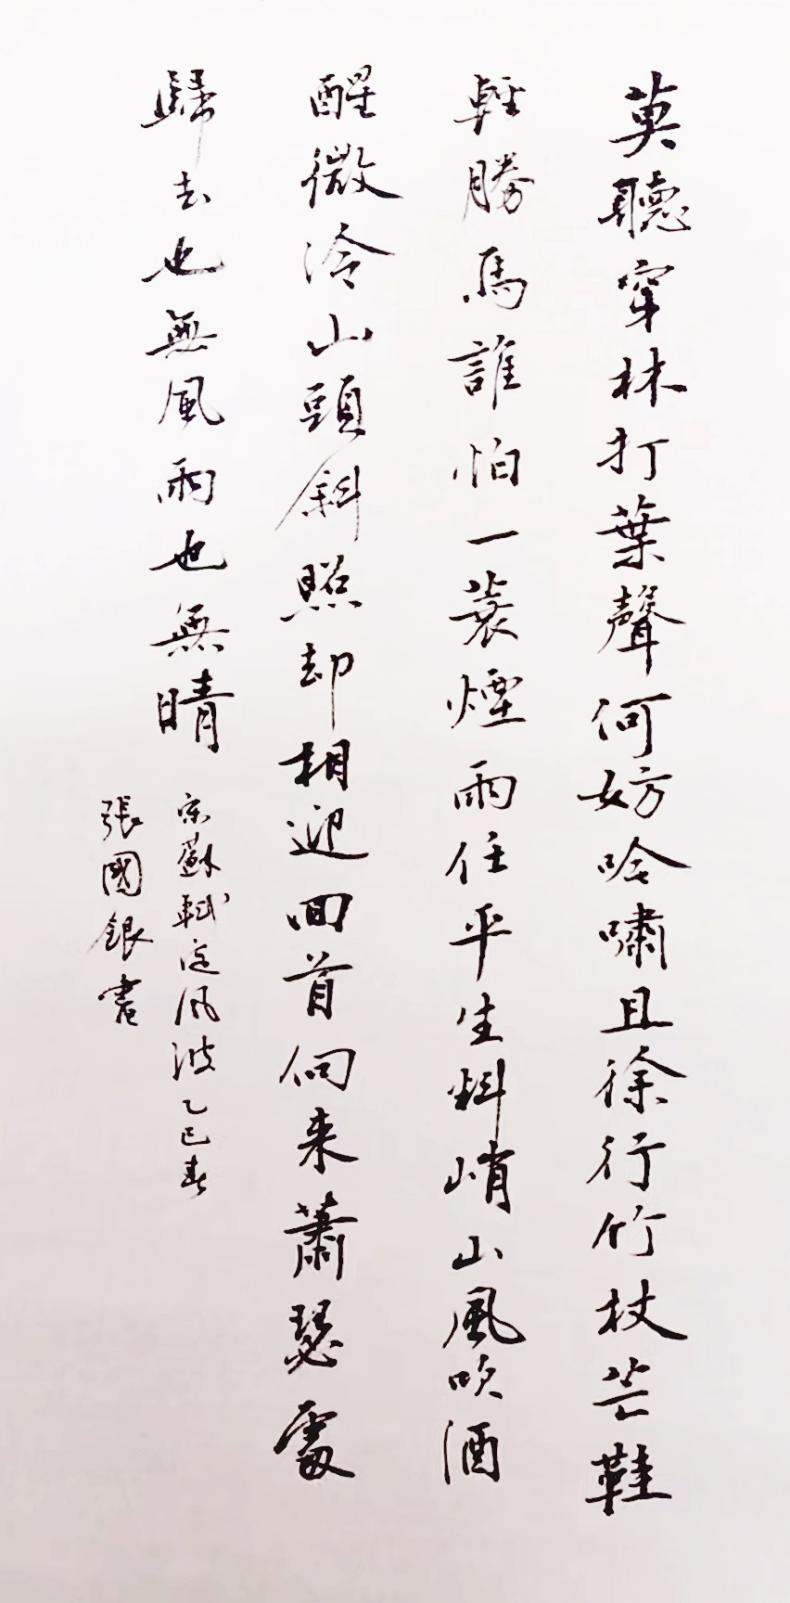 莫聽穿林打葉聲何妨吟嘯且徐行竹杖芒鞋
輕勝馬誰怕一蓑煙雨任平生料峭山風吹酒
醒微冷山頭斜照却相迎回首向来蕭瑟處
歸去也無風雨也無晴
宋蘇軾定风波乙巳春
張國銀書